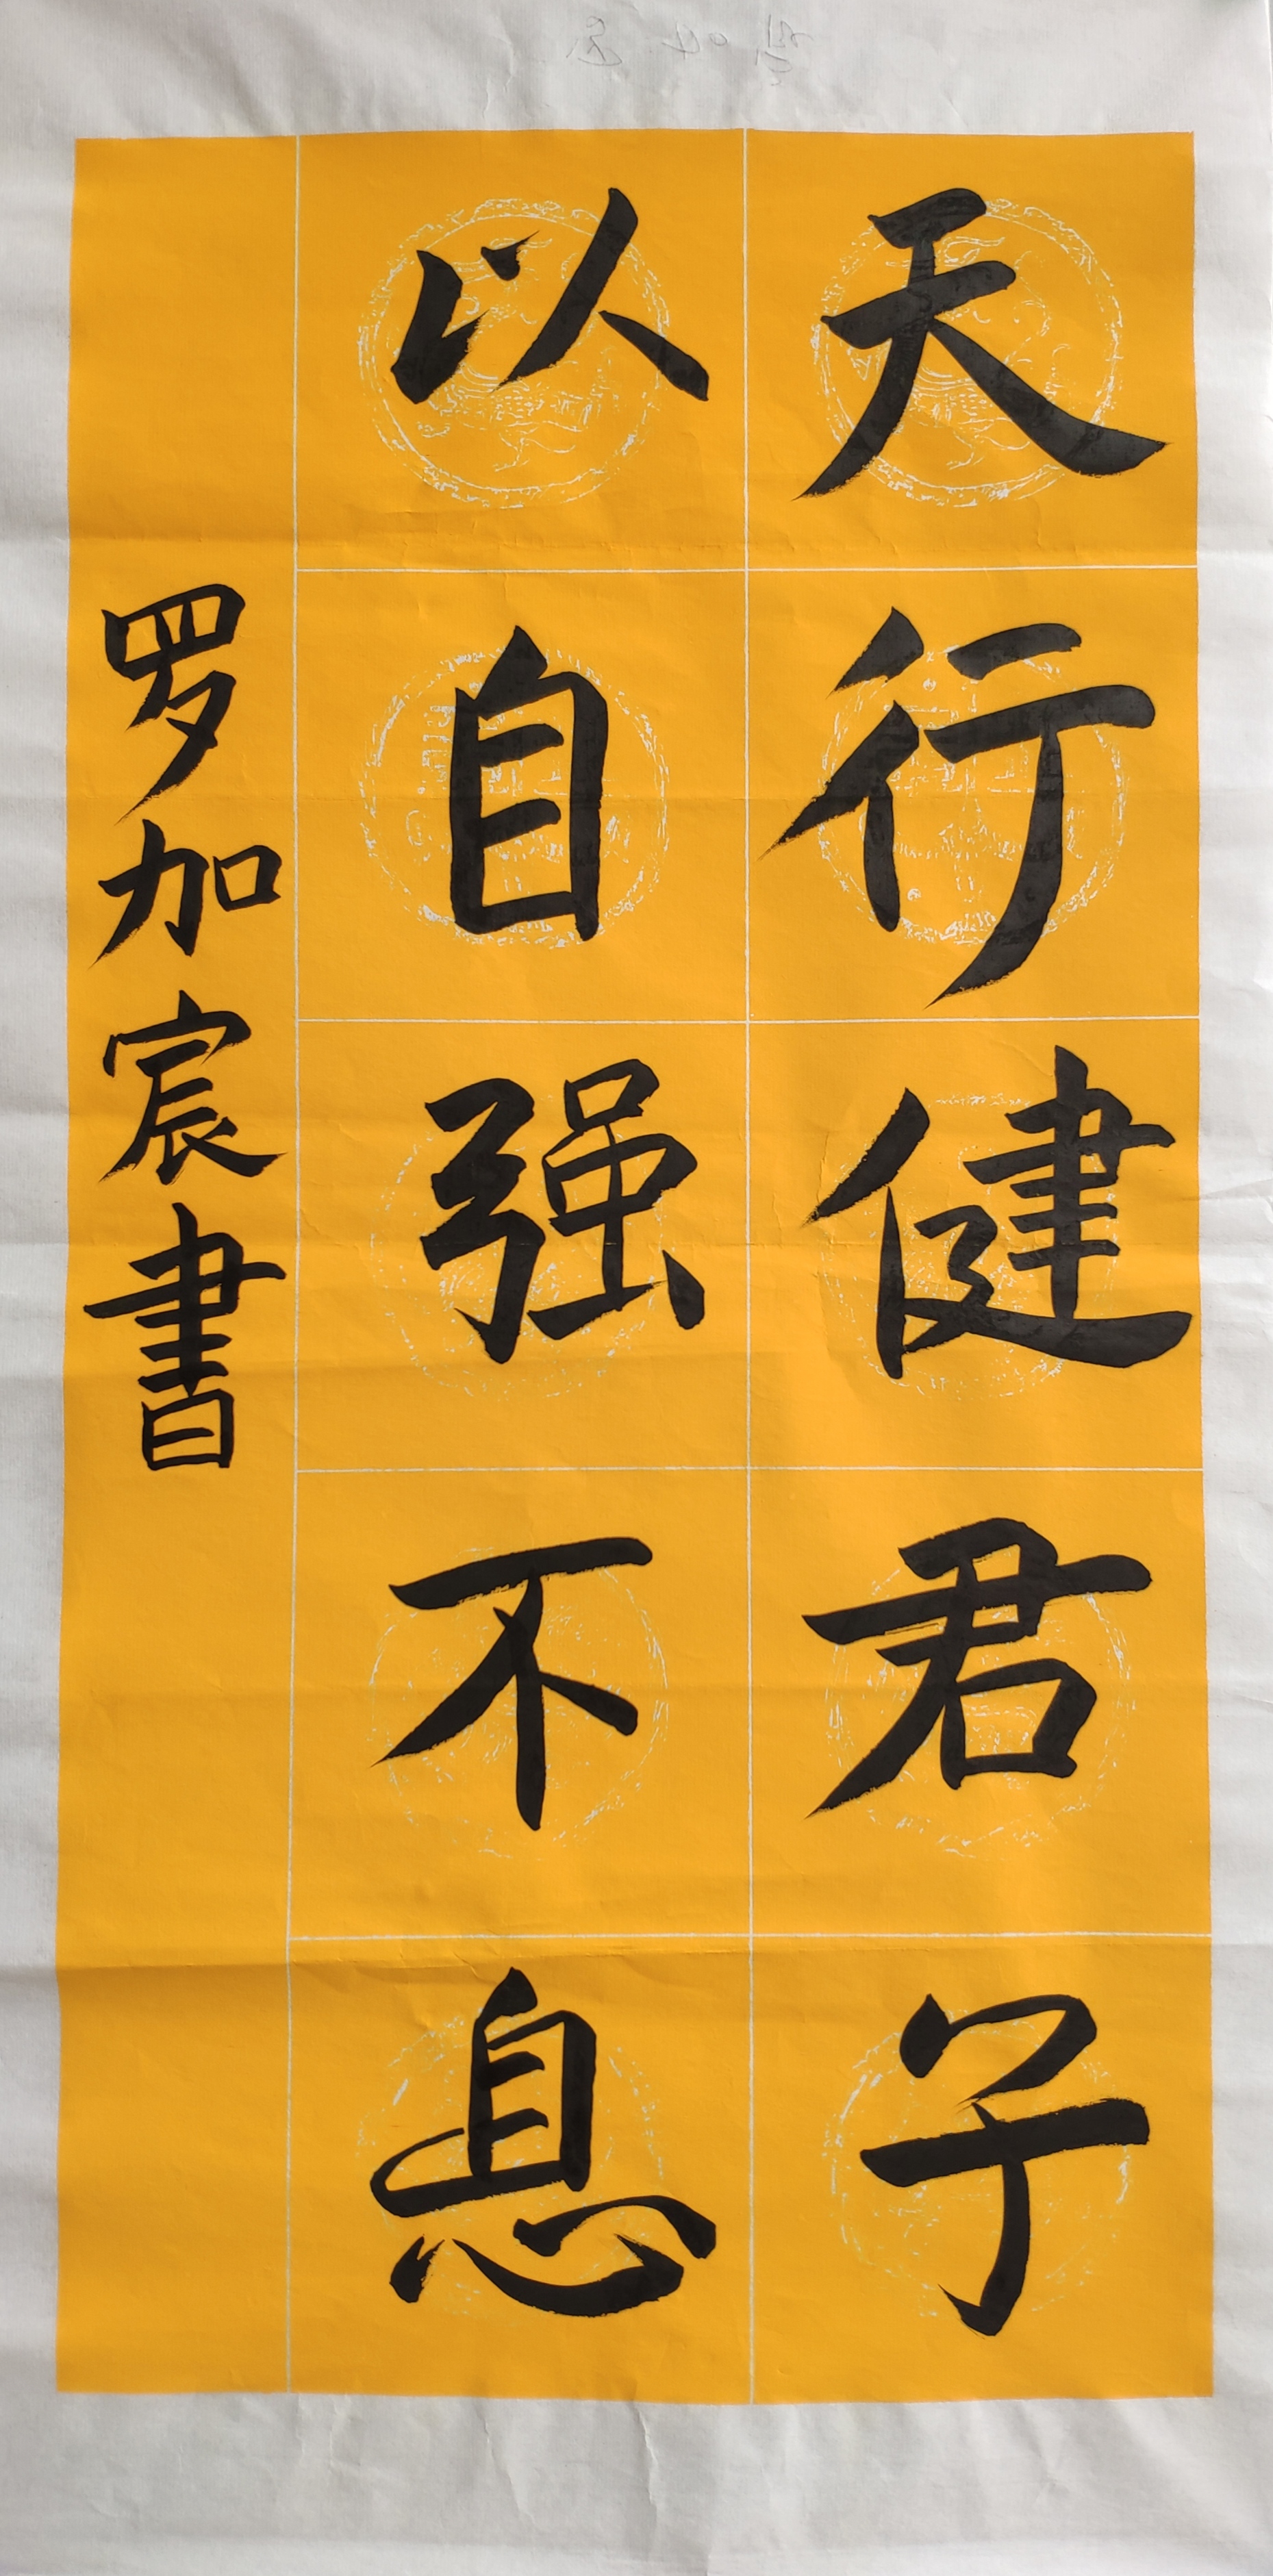 天行健君子
以自强不息
罗加宸書